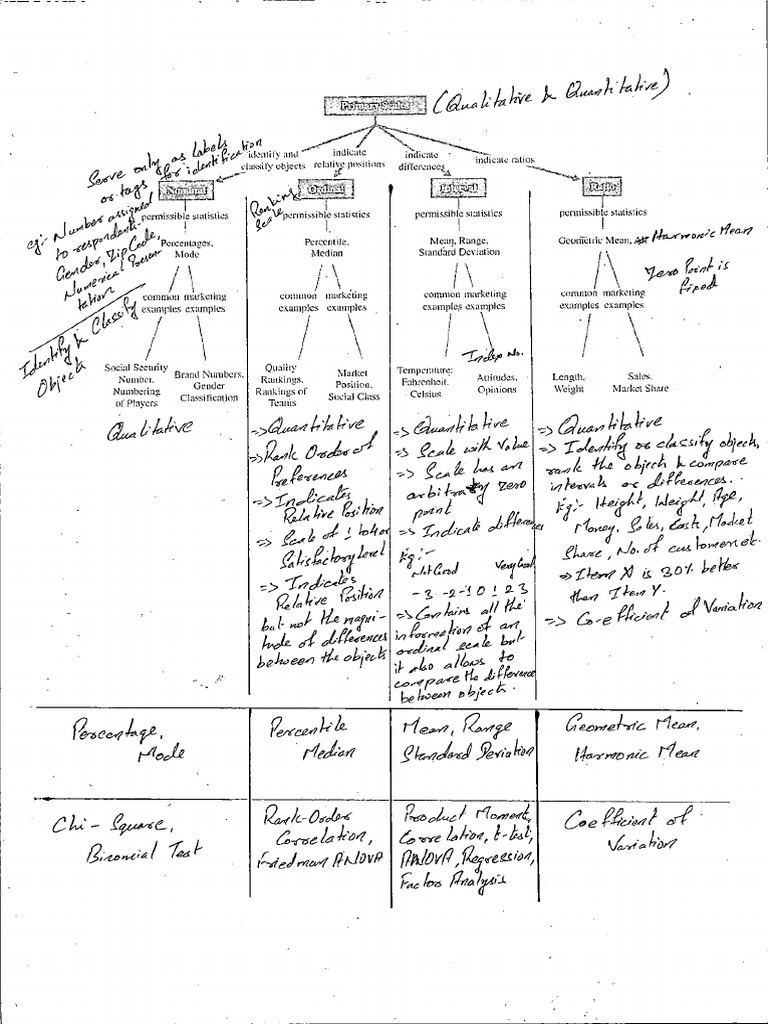 Primary Scales
(Qualitative & Quantitative)
identify and
classify objects
indicate
relative positions
indicate
differences
indicate ratios
Serve only as Labels
or tags for identification
eg:- Number assigned
to respondent.
Gender, Zip Code,
Numerical Presen
tation
Identify & Classify
Object
Nominal
permissible statistics
Percentages,
Mode
common marketing
examples examples
Social Security
Number,
Numbering
of Players
Brand Numbers,
Gender
Classification
Qualitative
Ranking
Scale
Ordinal
permissible statistics
Percentile,
Median
common marketing
examples examples
Quality
Rankings,
Rankings of
Teams
Market
Position,
Social Class
=> Quantitative
=> Rank Order of
Preferences
=> Indicates
Relative Position
=> Scale of 1 to 4 or
Satisfactory Level
=> Indicates
Relative Position
but not the magni-
tude of differences
between the objects
Interval
permissible statistics
Mean, Range,
Standard Deviation
common marketing
examples examples
Index No.
Temperature:
Fahrenheit,
Celsius
Attitudes,
Opinions
=> Quantitative
=> Scale with Value
=> Scale has an
arbitrary zero
point
=> Indicate difference
Eg:-
Not Good Very Good
-3 -2 -1 0 1 2 3
=> Contains all the
information of an
ordinal scale but
it also allows to
compare the difference
between objects.
Ratio
permissible statistics
Geometric Mean, Harmonic Mean
Zero Point is
fixed
common marketing
examples examples
Length,
Weight
Sales,
Market Share
=> Quantitative
=> Identify or classify objects,
rank the objects & compare
intervals or differences.
Eg:- Height, Weight, Age,
Money, Sales, Costs, Market
Share, No. of customers etc.
=> Item X is 30% better
than Item Y.
=> Co-efficient of Variation
Percentage,
Mode
Percentile
Median
Mean, Range
Standard Deviation
Geometric Mean,
Harmonic Mean
Chi - Square,
Binomial Test
Rank-Order
Correlation,
Friedman ANOVA
Product Moment,
Correlation, t-test,
ANOVA, Regression,
Factor Analysis
Coefficient of
Variation